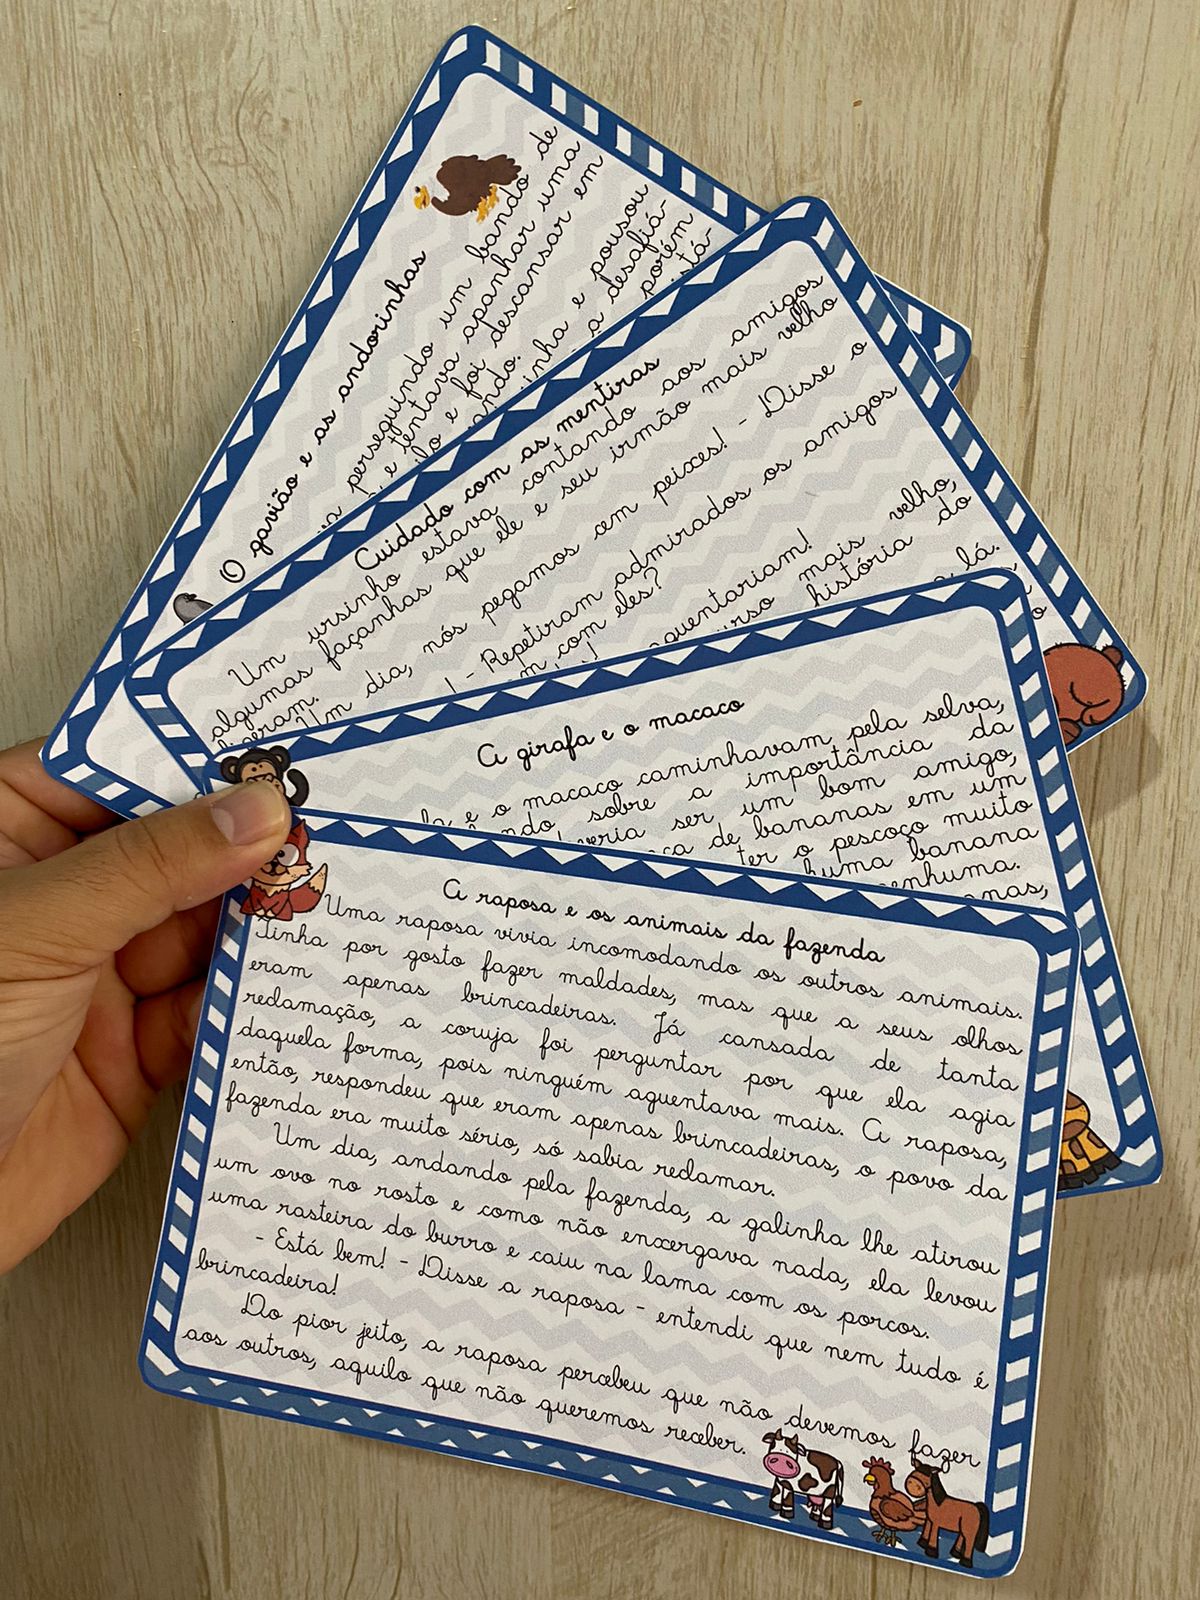 O gavião e as andorinhas
perseguindo um bando de
e tentava apanhar uma
e foi descansar em
e pousou
a desafiá-
porém
Cuidado com as mentiras
Um ursinho estava contando aos amigos
algumas façanhas que ele e seu irmão mais velho
fizeram.
Um dia, nós pegamos cem peixes! - Disse o
! - Repetiram admirados os amigos
com eles?
mais velho,
urso história do
lá.
A girafa e o macaco
e o macaco caminhavam pela selva,
sobre a importância da
ser um bom amigo,
de bananas em um
ter o pescoço muito
banana
nenhuma.
A raposa e os animais da fazenda
Uma raposa vivia incomodando os outros animais.
Tinha por gosto fazer maldades, mas que a seus olhos
eram apenas brincadeiras. Já cansada de tanta
reclamação, a coruja foi perguntar por que ela agia
daquela forma, pois ninguém aguentava mais. A raposa,
então, respondeu que eram apenas brincadeiras, o povo da
fazenda era muito sério, só sabia reclamar.
Um dia, andando pela fazenda, a galinha lhe atirou
um ovo no rosto e como não enxergava nada, ela levou
uma rasteira do burro e caiu na lama com os porcos.
- Está bem! - Disse a raposa - entendi que nem tudo é
brincadeira!
Do pior jeito, a raposa percebeu que não devemos fazer
aos outros, aquilo que não queremos receber.